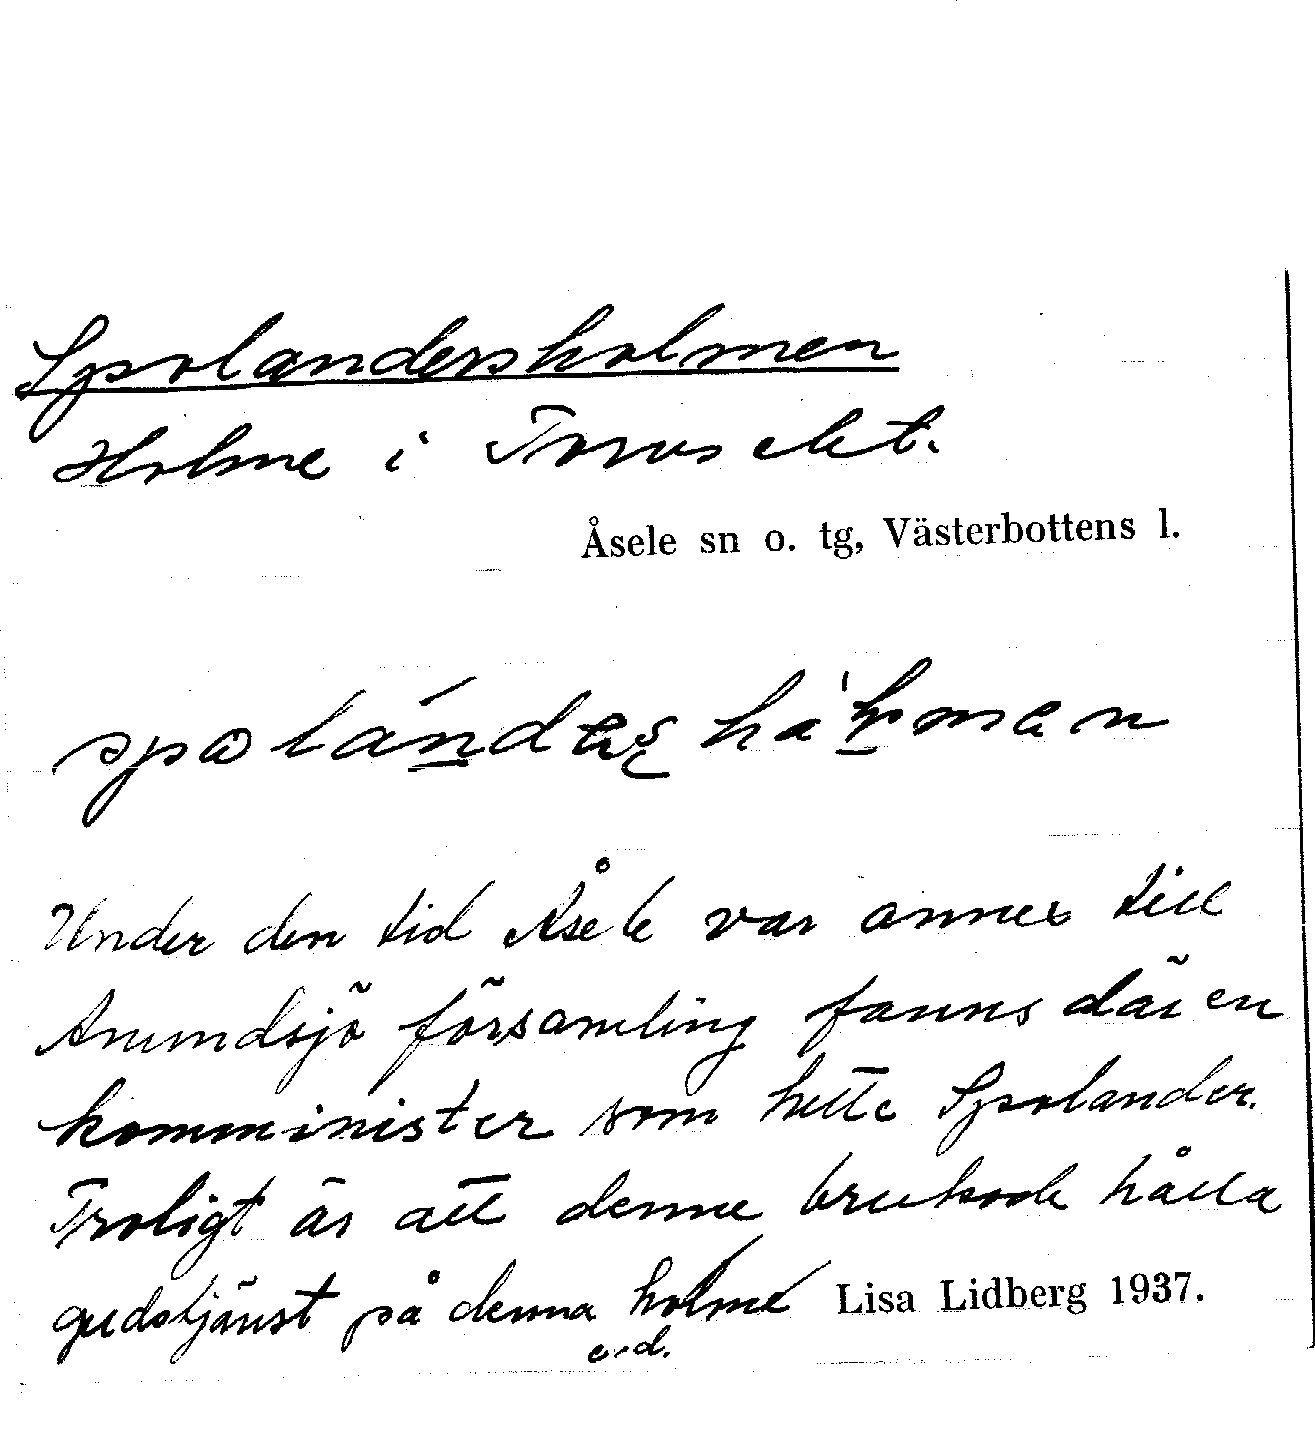 Spolandersholmen
Holme i Torvselet.
Åsele sn o. tg, Västerbottens l.
Under den tid Åsele var annex till
Anundsjö församling fanns där en
komminister som hette Spolander.
Troligt är att denne brukade hålla
gudstjänst på denna holme Lisa Lidberg 1937.